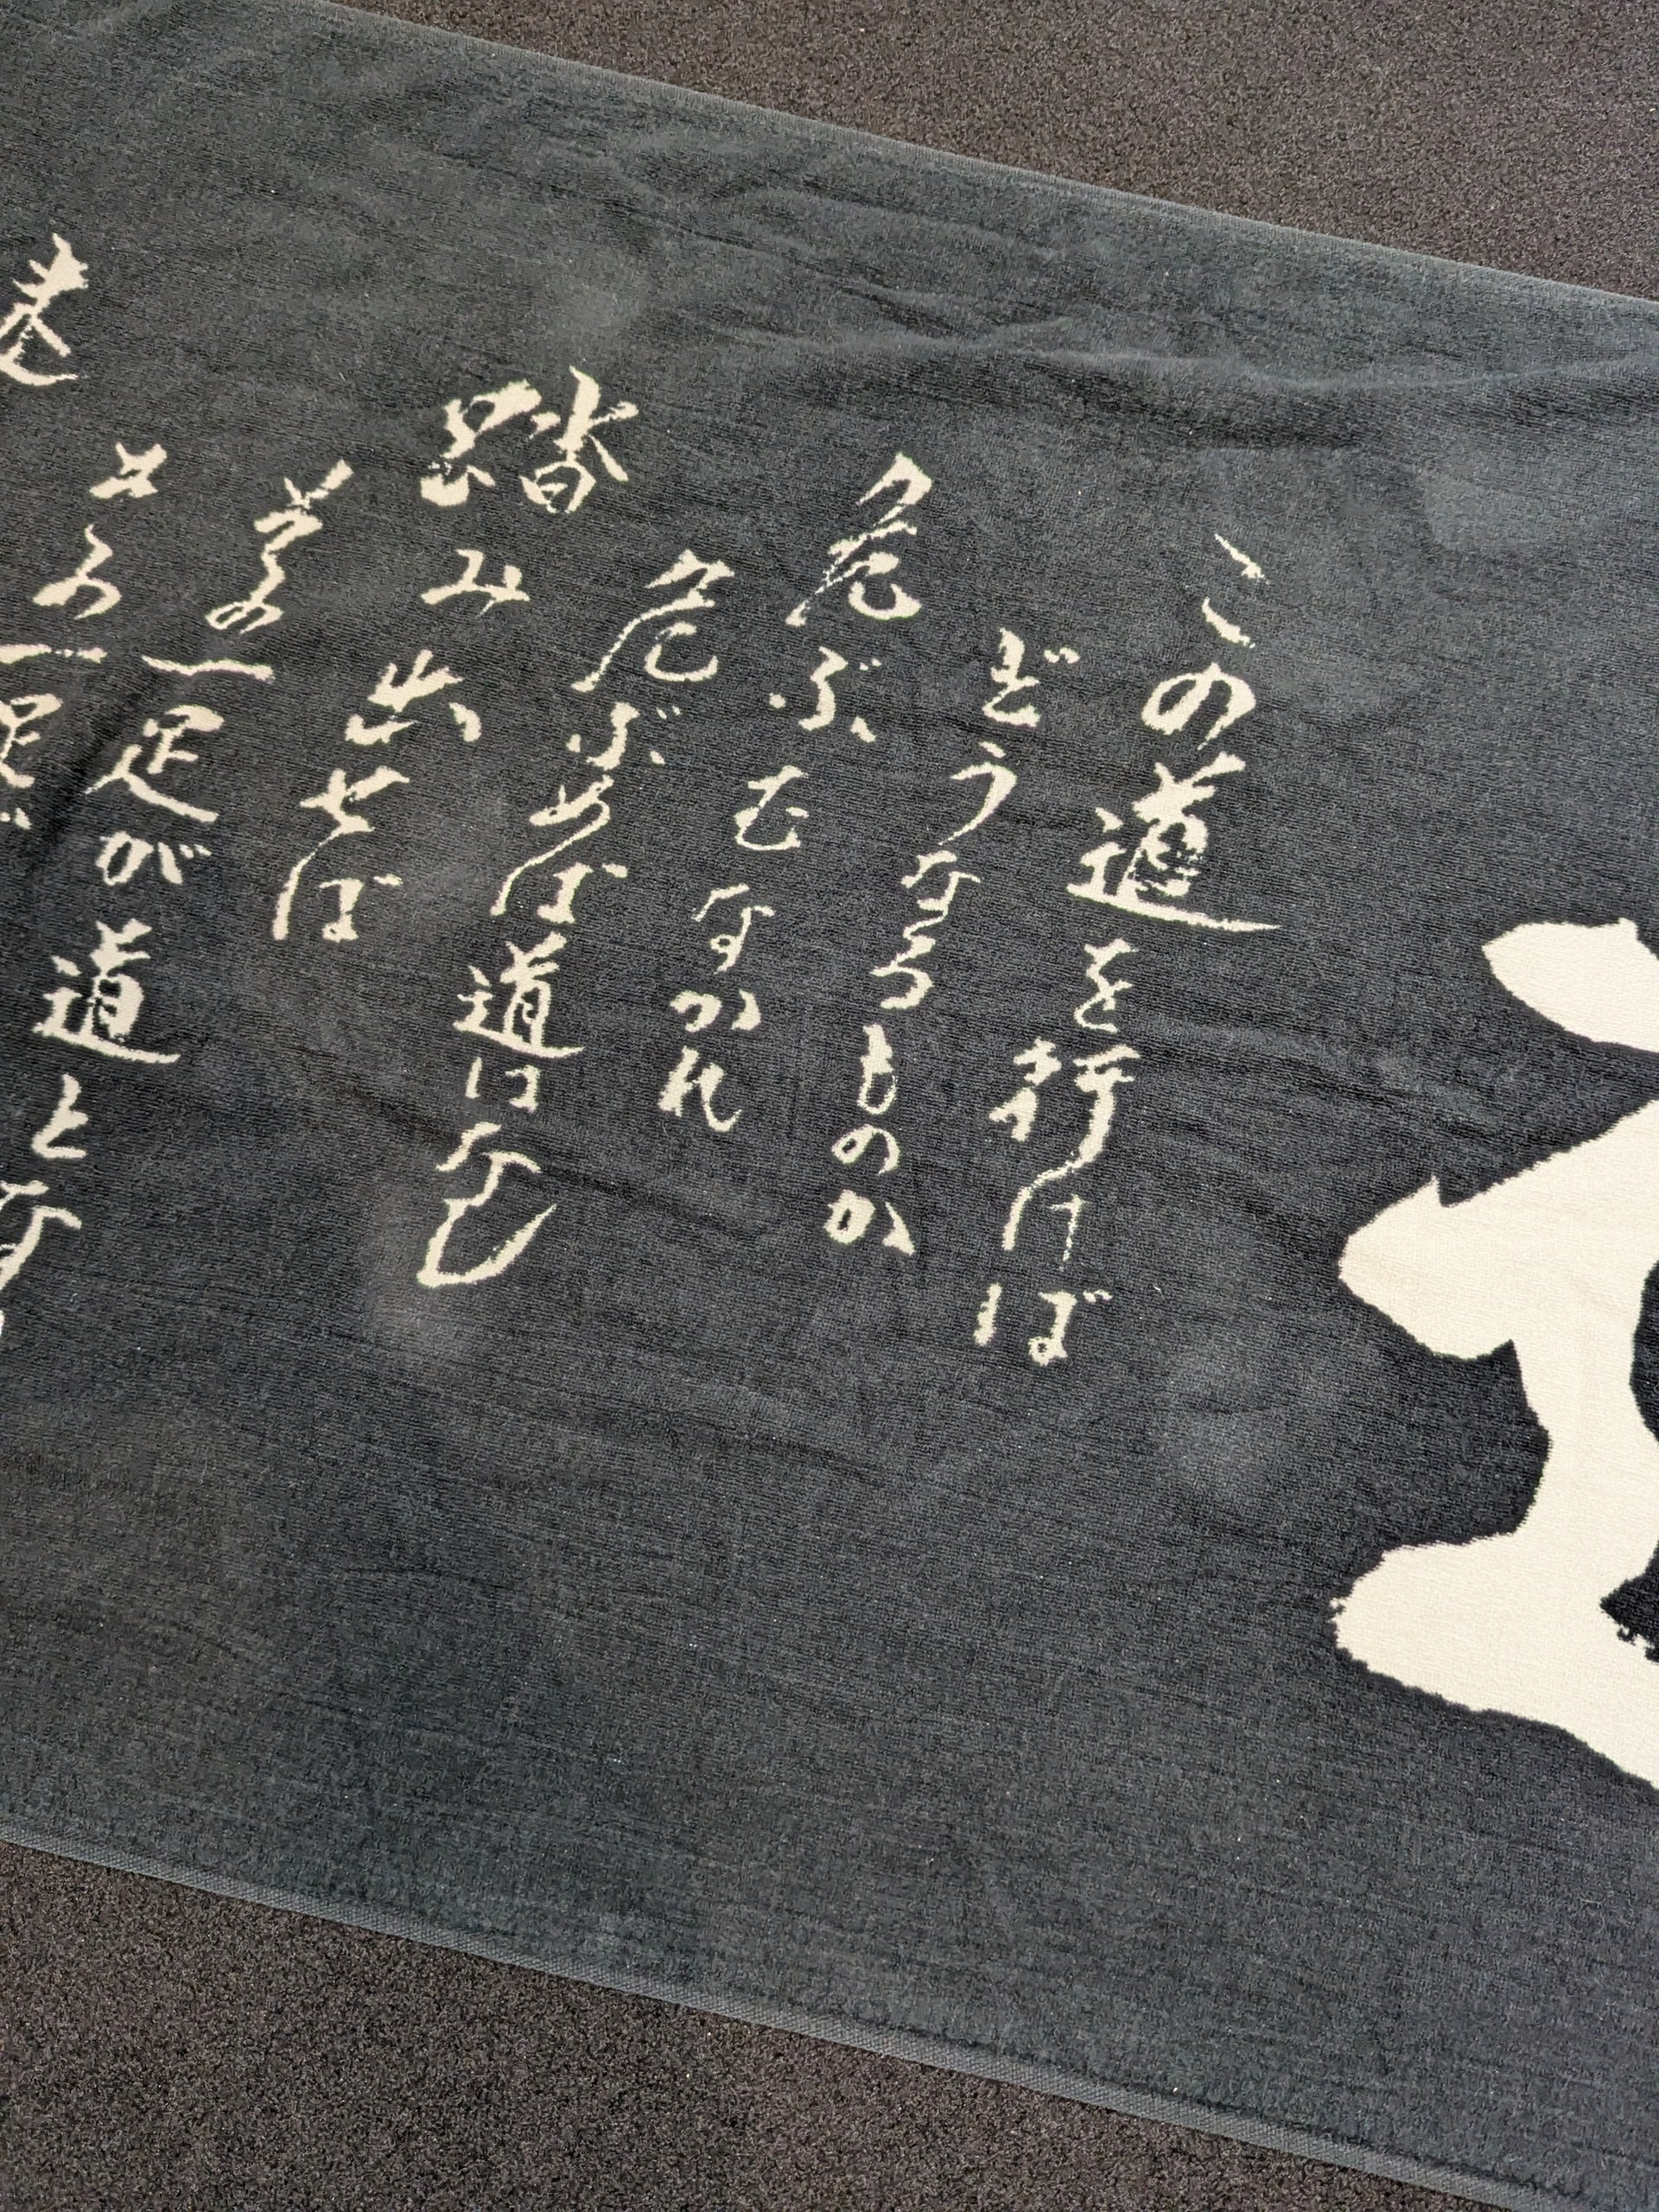 この道を行けば
どうなるものか
危ぶむなかれ
危ぶめば道はなし
踏み出せば
その一足が道とな
その一足が
迷